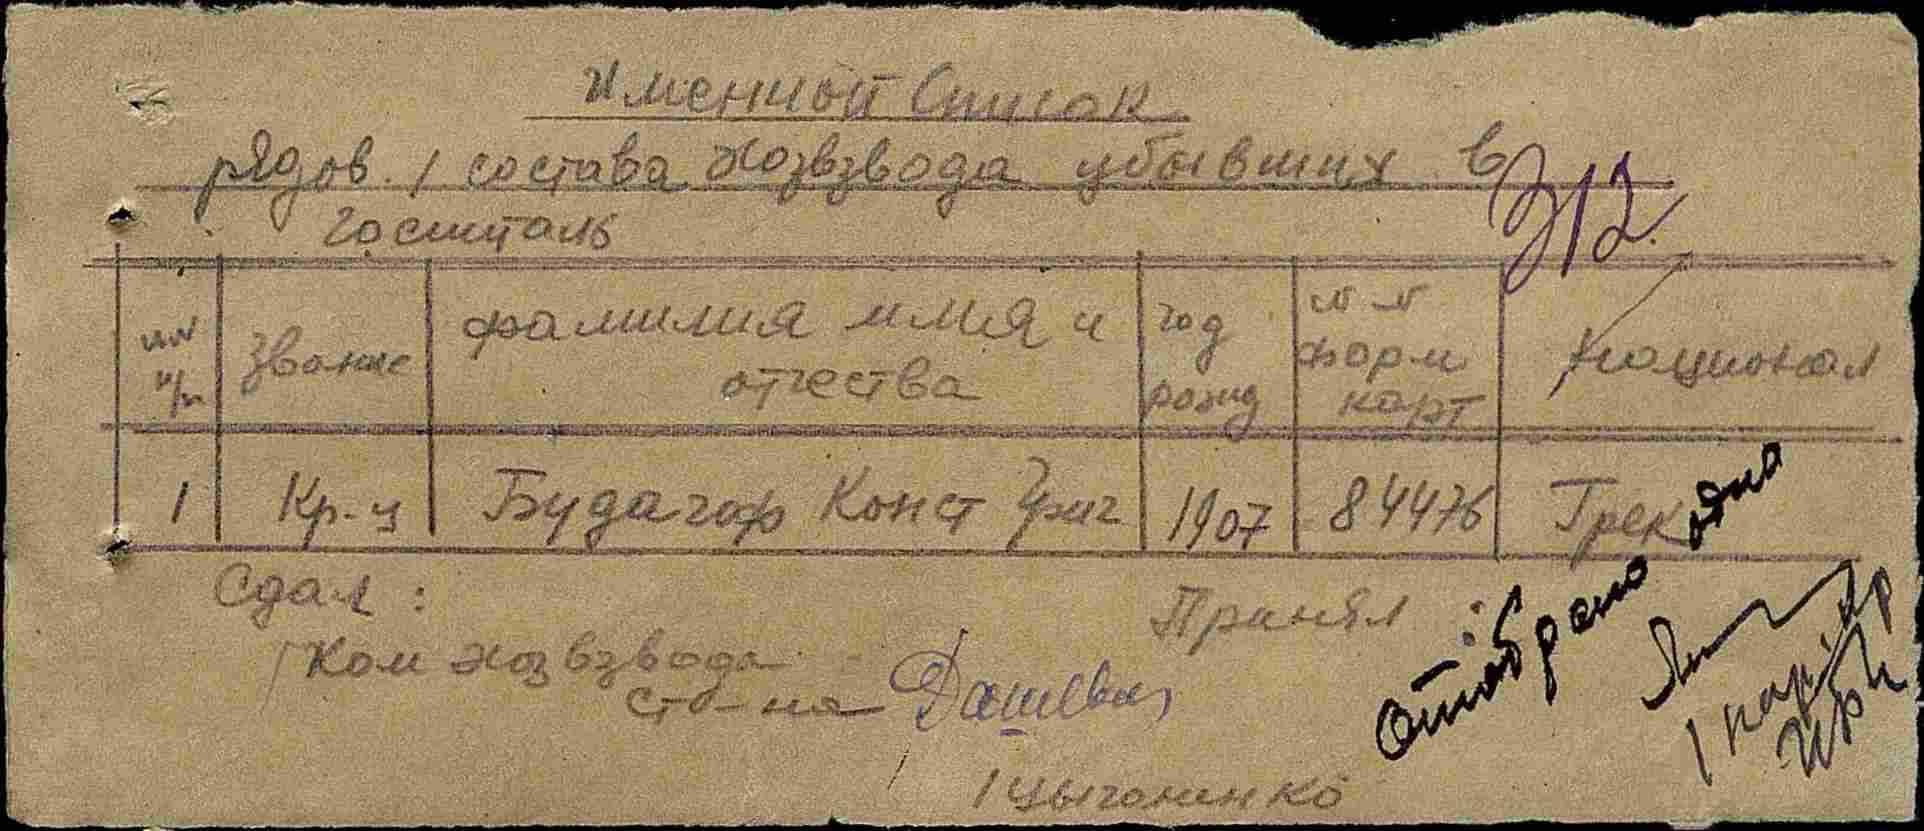 Именной Список
рядов. / состава Хозвзвода убывших в
госпиталь
312
№№ п/п
Звание
фамилия имия и отчества
год рожд
№ №
форм карт
национал
1 Кр-ц Будагор Конст Григ 1907 84476 Грек
Сдал : Принял :
Ком хозвзвода
ст-на
Отобрано одна
1 карт
/ Цыганенко